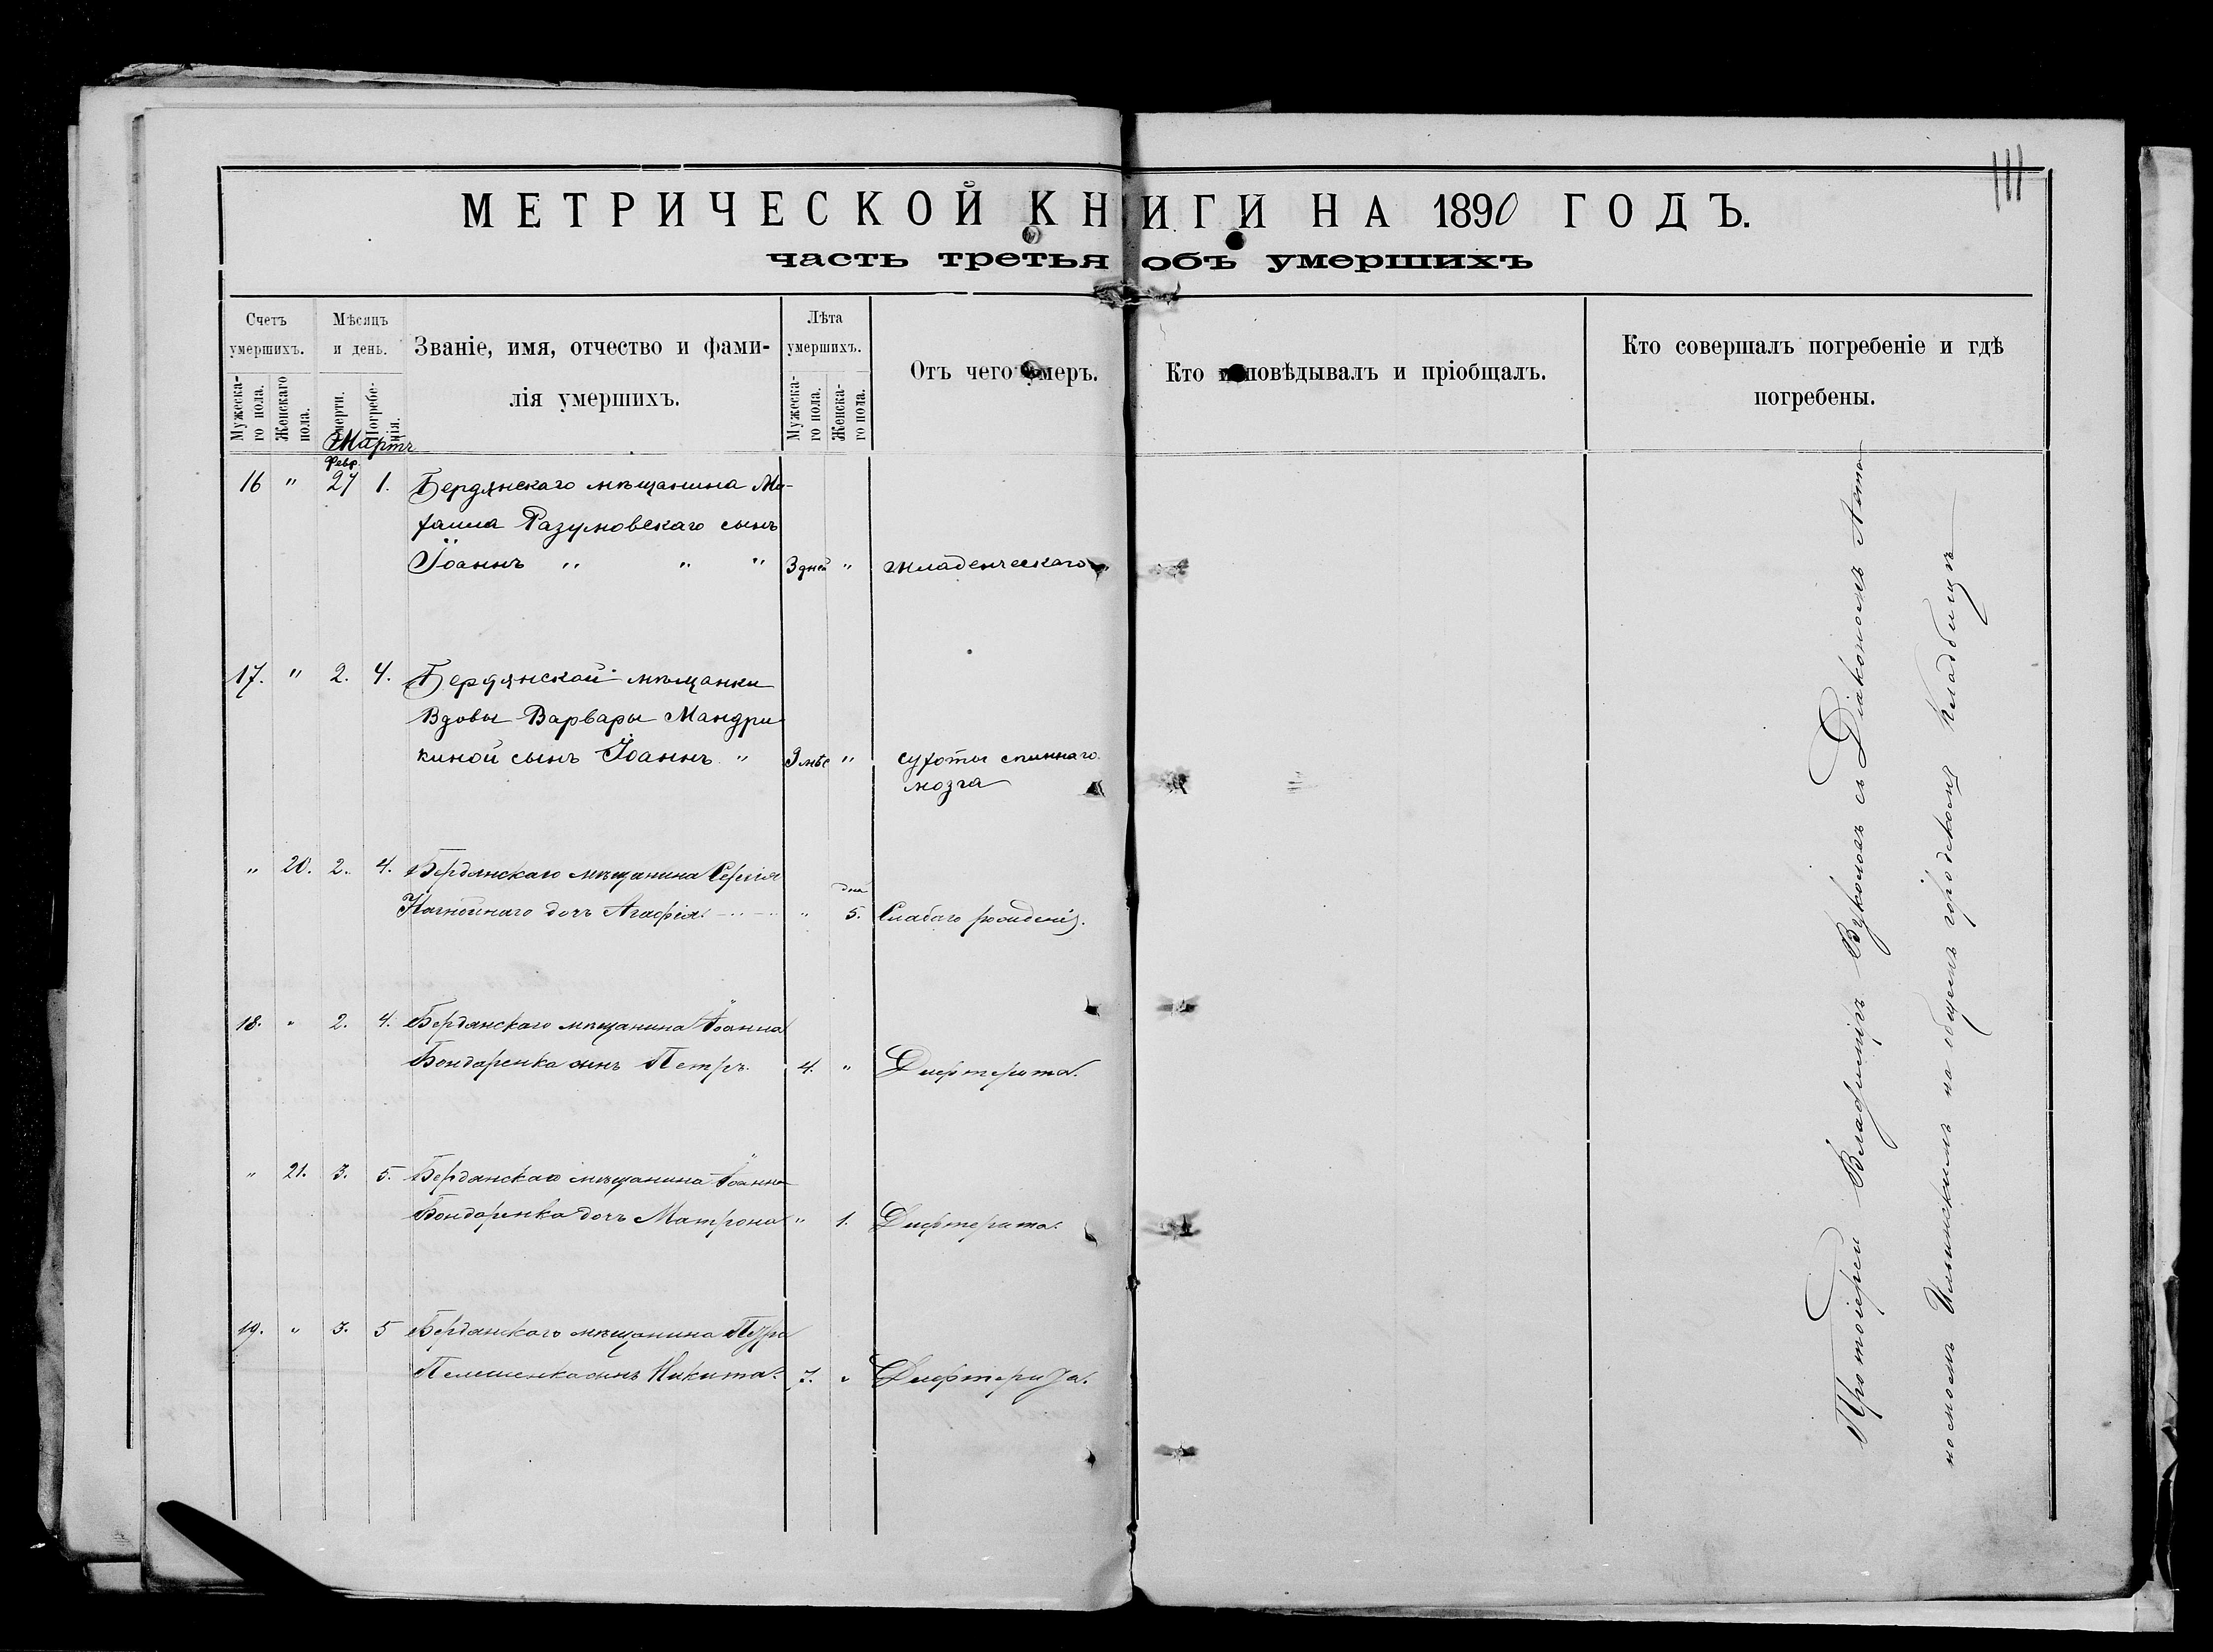 МЕТРИЧЕСКОЙ КНИГИ НА 1890 ГОДЪ.
часть третья объ умершихъ
Счетъ умершихъ.
Мужеска-го пола.
Женскаго пола.
Мѣсяцъ и день.
Смерти.
Погребе-нія.
Званіе, имя, отчество и фами-
лія умершихъ.
Лѣта умершихъ.
Мужеска-го пола.
Женска-го пола.
Отъ чего умеръ.
Кто исповѣдывалъ и пріобщалъ.
Кто совершалъ погребеніе и гдѣ
погребены.
Мартъ
Февр.
16 " 27 1. Бердянскаго мѣщанина Ми-
хаила Разумовскаго сынъ
Іоаннъ " " " 3 дней " младенческаго
17. " 2. 4. Бердянской мѣщанки
Вдовы Варвары Мандри
киной сынъ Іоаннъ. " 9 мѣс " сухоты спиннаго
мозга
" 20. 2. 4. Бердянскаго мѣщанина Сергія
дней
дочь Агафія. " 5. Слабаго рожденія.
18. " 2. 4. Бердянскаго мѣщанина Іоанна
Бондаренка сынъ Петръ. 4. " Дифтерита.
" 21. 3. 5. Бердянскаго мѣщанина Іоанна
Бондаренка дочь Матрона " 1. Дифтерита.
19. " 3. 5 Бердянскаго мѣщанина Петра
сынъ Никита. 7. " Дифтерита.
Протоіерей Владиміръ Вуколовъ съ Діакономъ Анто
номъ Ильинскимъ на общемъ городскомъ кладбищѣ